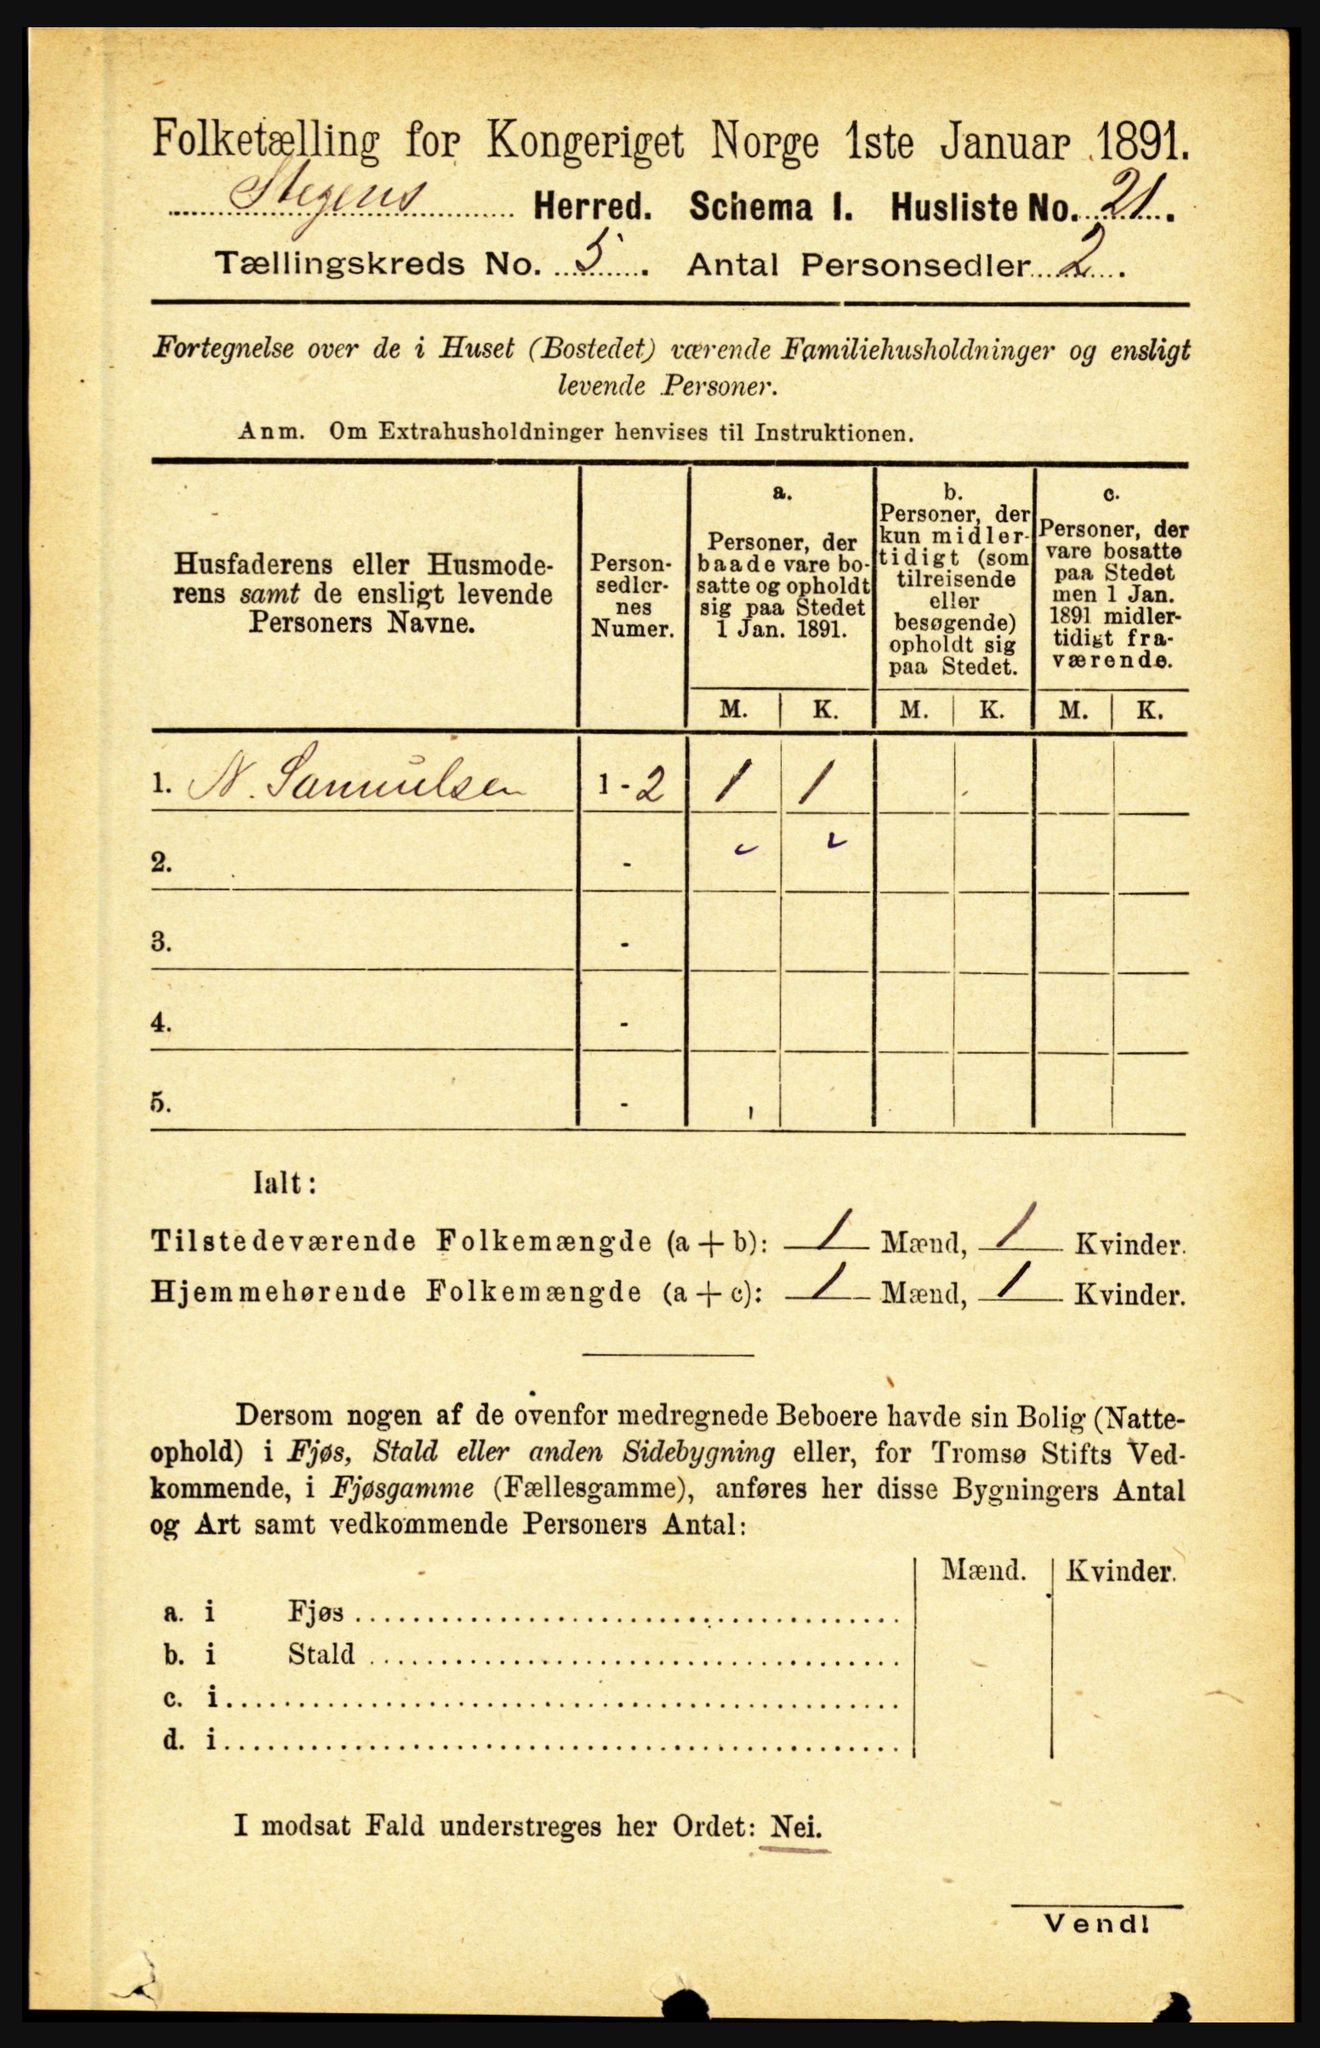 Folketælling for Kongeriget Norge 1ste Januar 1891.
Stegens Herred. Schema I. Husliste No. 21.
Tællingskreds No. 5. Antal Personsedler 2.
Fortegnelse over de i Huset (Bostedet) værende Familiehusholdninger og ensligt
levende Personer.
Anm. Om Extrahusholdninger henvises til Instruktionen.
Husfaderens eller Husmode-
rens samt de ensligt levende
Personers Navne.
Person-
sedler-
nes
Numer.
a.
Personer, der
baade vare bo-
satte og opholdt
sig paa Stedet
1 Jan. 1891.
b.
Personer, der
kun midler-
tidigt (som
tilreisende
eller
besøgende)
opholdt sig
paa Stedet.
c.
Personer, der
vare bosatte
paa Stedet
men 1 Jan.
1891 midler-
tidigt fra-
værende.
M. K. M. K. M. K.
1. N. Samuelsen 1 - 2 1 1
2. -
3. -
4. -
5. -
Ialt:
Tilstedeværende Folkemængde (a + b): 1 Mænd, 1 Kvinder.
Hjemmehørende Folkemængde (a + c): 1 Mænd, 1 Kvinder.
Dersom nogen af de ovenfor medregnede Beboere havde sin Bolig (Natte-
ophold) i Fjøs, Stald eller anden Sidebygning eller, for Tromsø Stifts Ved-
kommende, i Fjøsgamme (Fællesgamme), anføres her disse Bygningers Antal
og Art samt vedkommende Personers Antal:
Mænd. Kvinder.
a. i Fjøs
b. i Stald
c. i
d. i
I modsat Fald understreges her Ordet: Nei.
Vend!